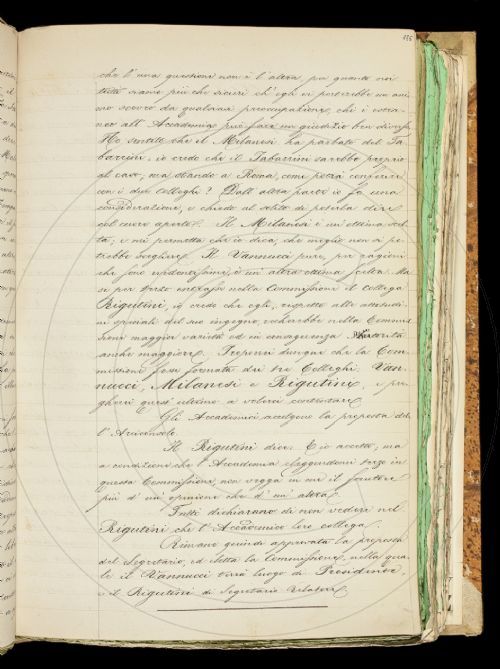 185
che l'una questione non è l'altra, per quanto noi
tutti siamo più che sicuri ch'egli vi porterebbe un ani-
mo scevro da qualsiasi preoccupazione, chi è estra-
neo all'Accademia può fare un giudizio ben diverso.
Ho sentito che il Milanesi ha parlato del Ta-
barrini; io credo che il Tabarrini sarebbe proprio
al caso; ma stando a Roma, come potrà conferire
con i due colleghi? Dall'altra parte io fo una
considerazione, e chiedo al solito di poterla dire
col cuore aperto. Il Milanesi è un'ottima scel-
ta, e mi permetta che io dica, che meglio non si po-
trebbe scegliere. Il Vannucci pure, per ragioni
che sono evidentissime, è un'altra ottima scelta. Ma
se per terzo entrasse nella Commissione il collega
Rigutini, io credo che egli, rispetto alle attitudi-
ni speciali del suo ingegno, recherebbe nella Commis-
sione maggior varietà ed in conseguenza autorità
anche maggiore. Proporrei dunque che la Com-
missione fosse formata dei tre Colleghi, Van-
nucci, Milanesi e Rigutini, e pre-
gherei quest'ultimo a volersi contentare.
Gli Accademici accolgono la proposta del-
l'Arciconsolo.
Il Rigutini dice: E io accetto, ma
a condizione che l'Accademia eleggendomi terzo in
questa Commissione, non vegga in me il fautore
più d'un'opinione che d'un'altra.
Tutti dichiarano di non vedere nel
Rigutini che l'Accademico loro collega.
Rimane quindi approvata la proposta
del Segretario, ed eletta la Commissione, nella qua-
le il Vannucci terrà luogo di Presidente,
e il Rigutini di Segretario Relatore.